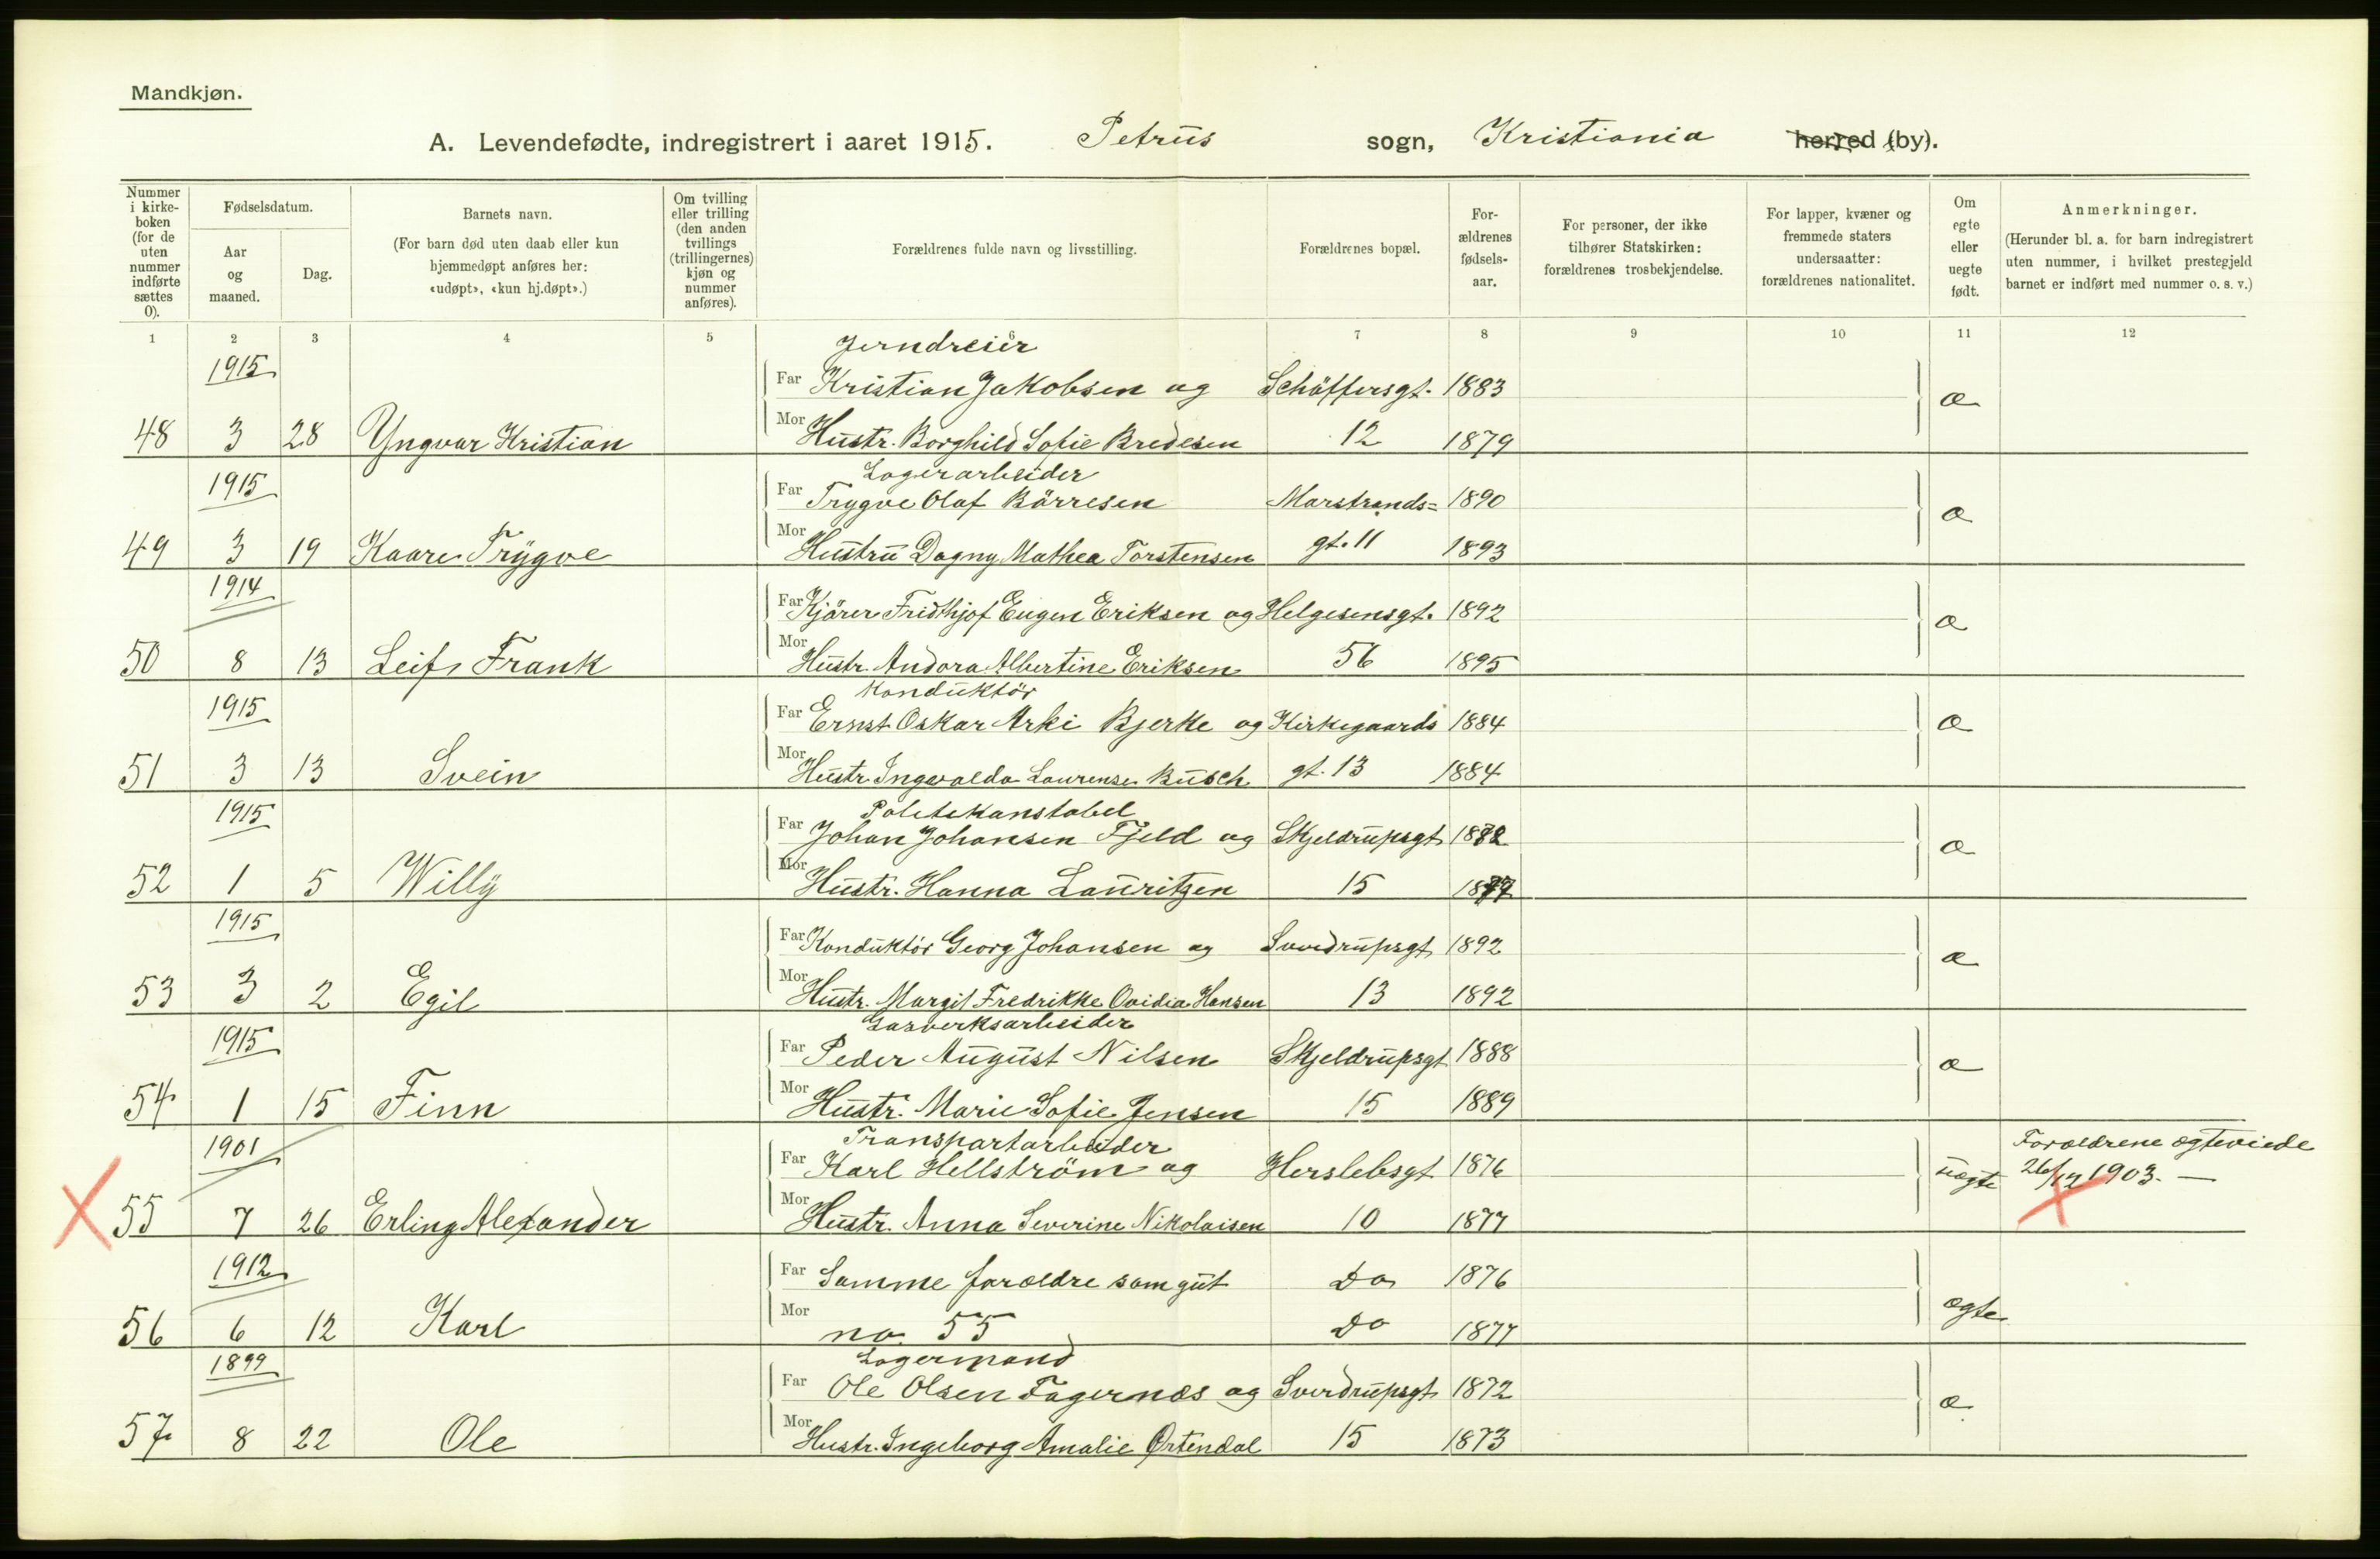 Mandkjøn.
A. Levendefødte, indregistrert i aaret 1915. Petrus sogn, Kristiania herred (by).
Nummer i kirke-boken (for de uten nummer indførte sættes 0).
Fødselsdatum.
Aar og maaned.
Dag.
Barnets navn.
(For barn død uten daab eller kun hjemmedøpt anføres her: «udøpt», «kun hj.døpt».)
Om tvilling eller trilling (den anden tvillings (trillingernes) kjøn og nummer anføres).
Forældrenes fulde navn og livsstilling.
Forældrenes bopæl.
For-ældrenes fødsels-aar.
For personer, der ikke tilhører Statskirken: forældrenes trosbekjendelse.
For lapper, kvæner og fremmede staters undersaatter: forældrenes nationalitet.
Om egte eller uegte født.
Anmerkninger.
(Herunder bl. a. for barn indregistrert uten nummer, i hvilket prestegjeld barnet er indført med nummer o. s. v.)
1 2 3 4 5 6 7 8 9 10 11 12
1915 Jerndreier
Far Kristian Jakobsen og Schäffersgt. 1883 æ
48 3 28 Yngvar Kristian Mor Hustr. Borghild Sofie Bredesen 12 1879
1915 Lagerarbeider
Far Trygve Olaf Börresen Marstrands= 1890 æ
49 3 19 Kaare Trygve Mor Hustru Dagny Mathea Torstensen gt. 11 1893
1914
Far Kjörer Fridthjof Eugen Eriksen og Helgesensgt. 1892 æ
50 8 13 Leif Frank Mor Hustr. Andora Albertine Eriksen 56 1895
1915 Konduktör
Far Ernst Oskar Arki Bjerke og Kirkegaards 1884 æ
51 3 13 Svein Mor Hustr. Ingevalda Laurense Busch gt. 13 1884
1915 Politikonstabel
Far Johan Johansen Fjeld og Skjeldrupsgt æ
52 1 5 Willy Mor Hustr. Hanna Lauritzen 15
1915
Far Konduktör Georg Johansen og Sverdrupsgt 1892 æ
53 3 2 Egil Mor Hustr. Margit Fredrikke Ovidia Hansen 13 1892
1915 Gasverksarbeider
Far Peder August Nilsen Skjeldrupsgt 1888 æ
54 1 15 Finn Mor Hustr. Marie Sofie Jensen 15 1889
1901 Transportarbeider Forældrene egteviede
Far Karl Hellström og Herslebsgt 1876 uegte 26/12 1903. —
55 7 26 Erling Alexander Mor Hustr. Anna Severine Nikolaisen 10 1877
1912
Far Samme forældre som gut Do 1876 ægte
56 6 12 Karl Mor no. 55 Do 1877
1899 Lagermand
Far Ole Olsen Fagernæs og Sverdrupsgt 1872 æ
57 8 22 Ole Mor Hustr. Ingeborg Amalie Ørtendal 15 1873